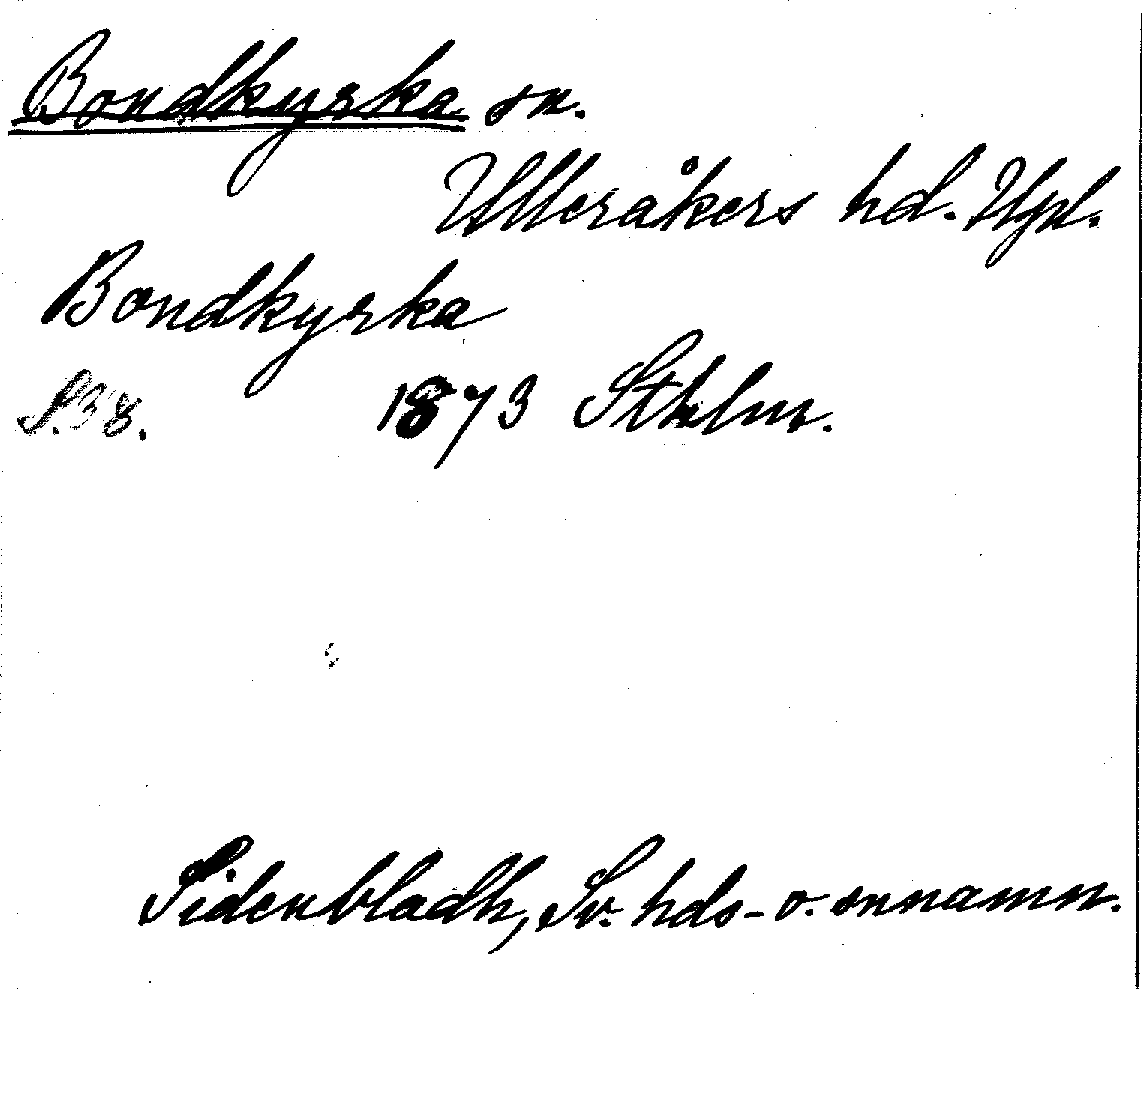 Bondkyrka sn.
Ulleråkers hd. Upl.
Bondkyrka
S.38. 1873 Sthlm.
Sidenbladh, Sv. hds- o. snnamn.